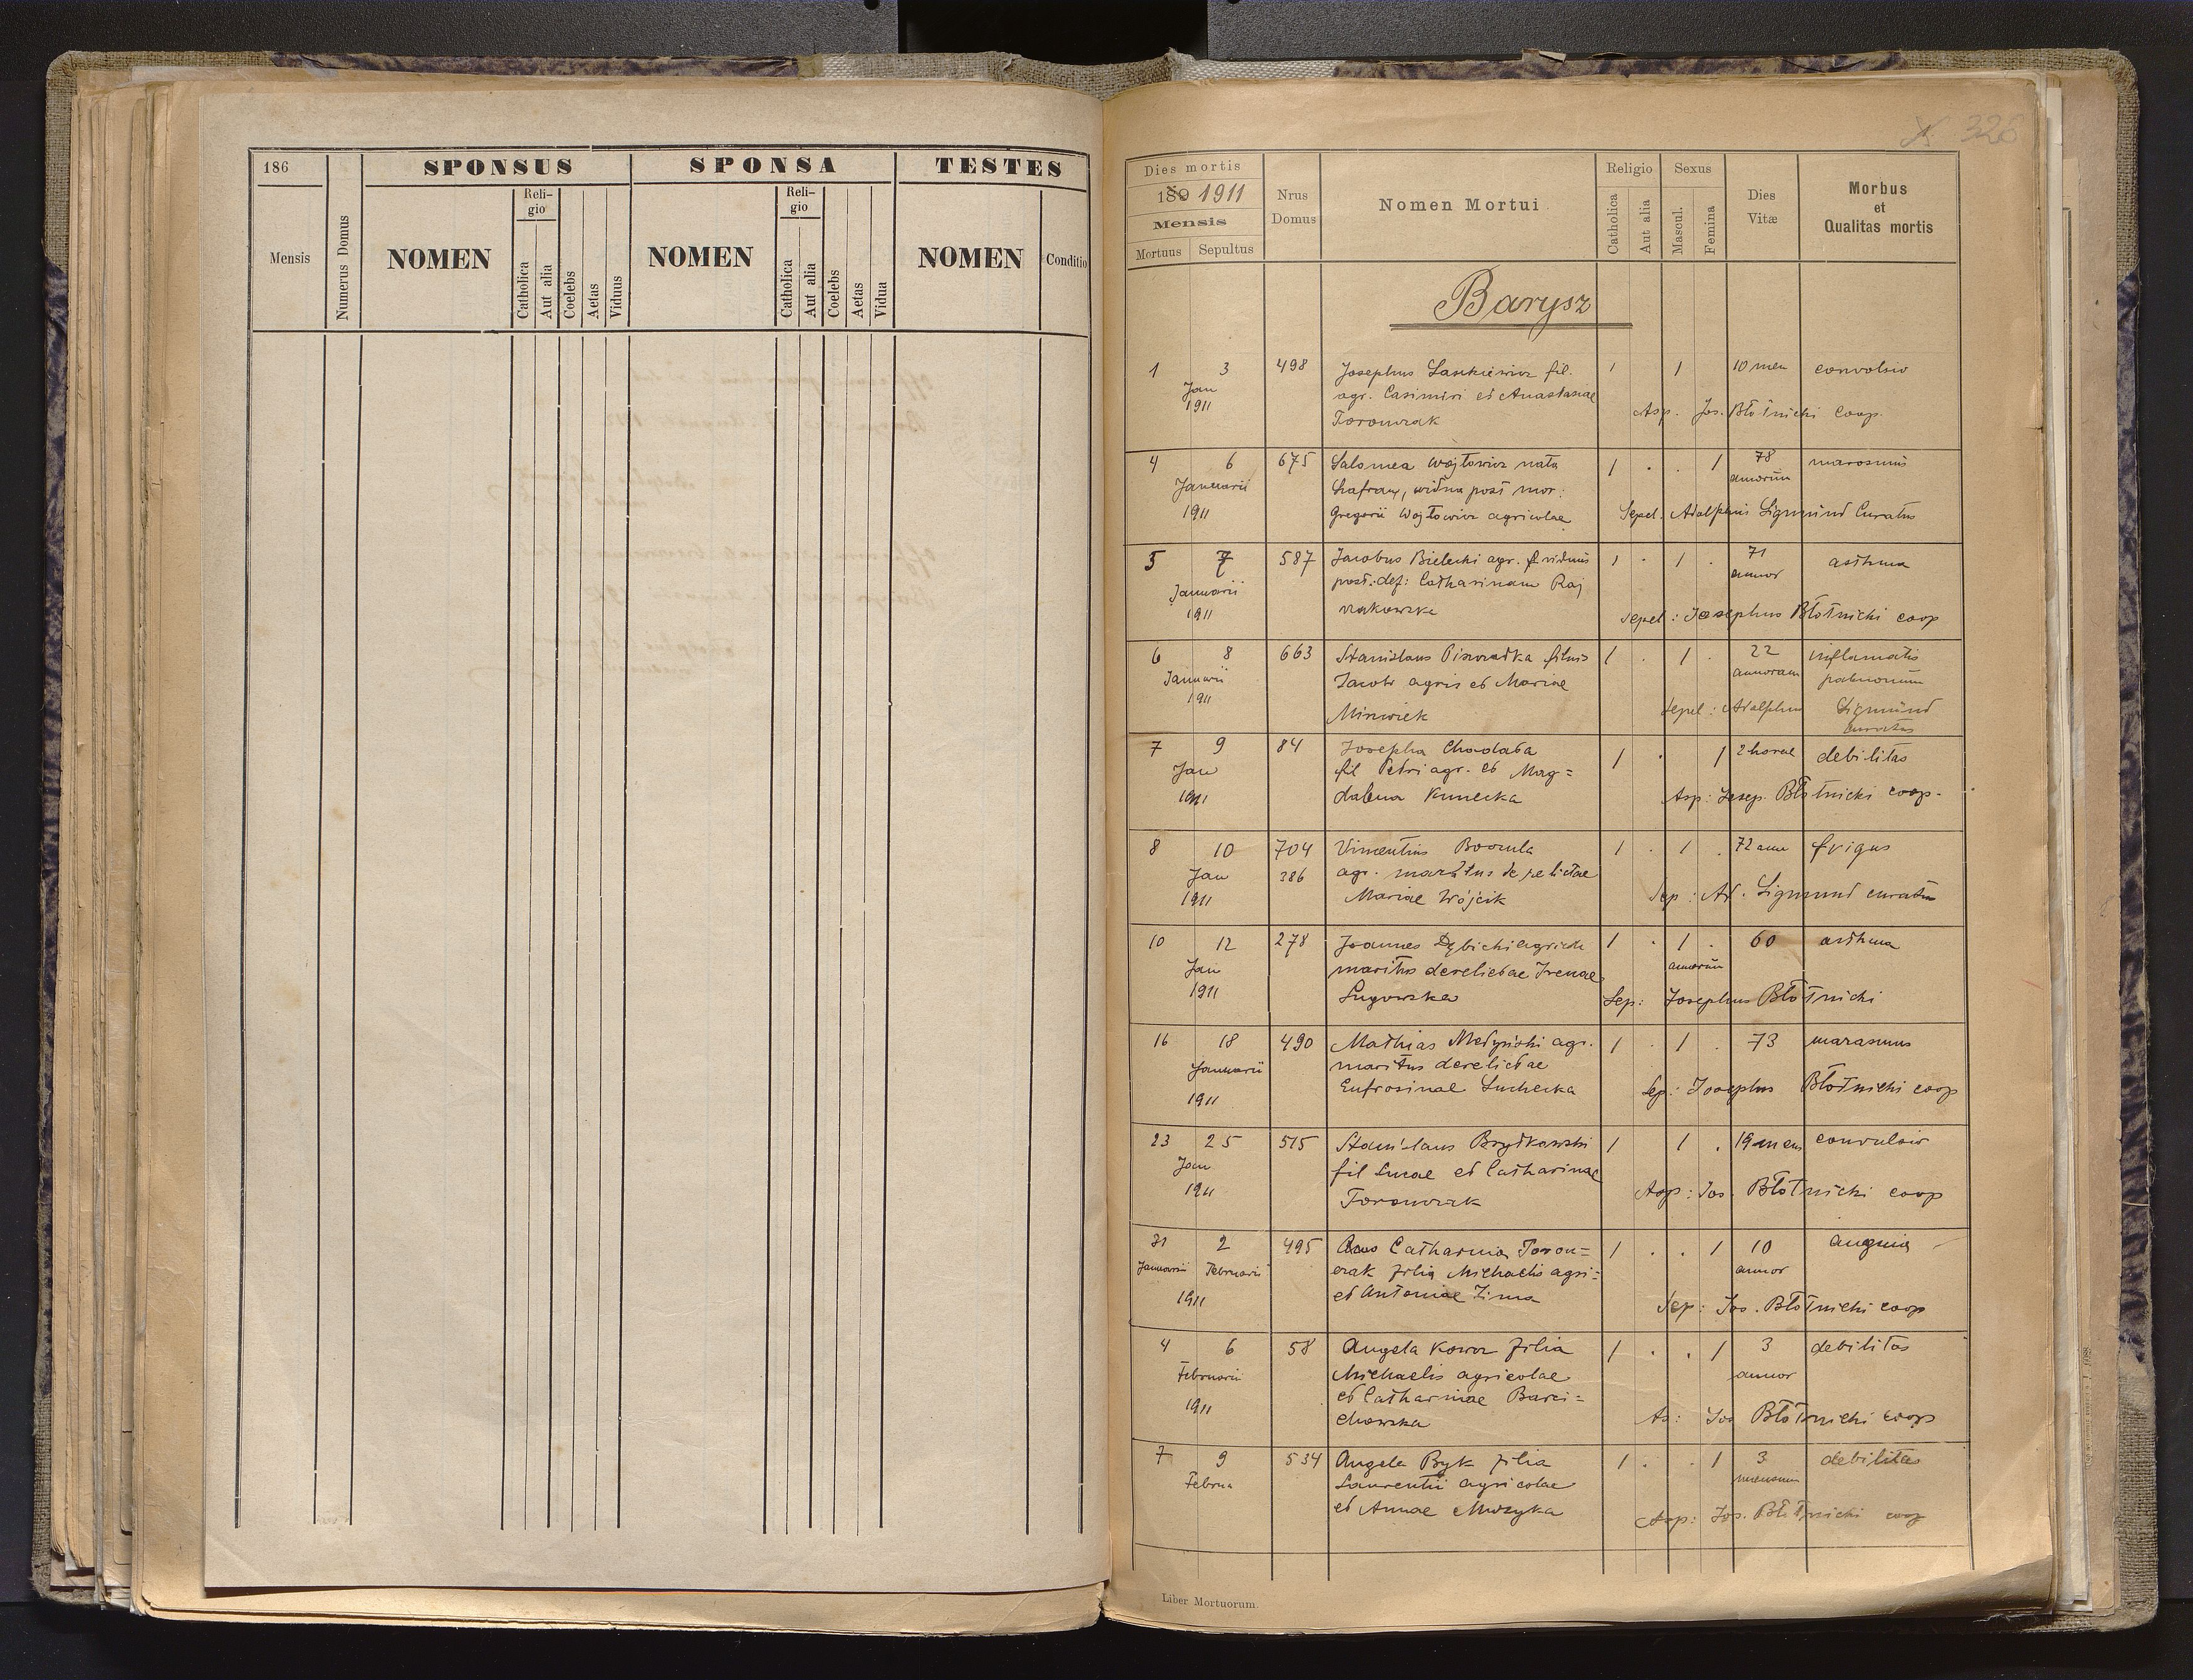 186
SPONSUS
SPONSA
TESTES
Mensis
Numerus Domus
NOMEN
Religio
Catholica
Aut alia
Coelebs
Aetas
Viduus
NOMEN
Religio
Catholica
Aut alia
Coelebs
Aetas
Vidua
NOMEN
Conditio
326
Dies mortis
189 1911
Mensis
Mortuus Sepultus
Nrus Domus
Nomen Mortui
Religio
Catholica
Aut alia
Sexus
Mascul.
Femina
Dies Vitæ
Morbus
et
Qualitas mortis
Barysz
1 3 498 Josephus fil. 1 1 10 men convolsio
Jan agr. Casimiri et Anastasiae
1911 Toronczak Asp. Jos. Błotnicki coop.
4 6 675 Salomea Wojtowicz nata 1 . . 1 78 marasmus
Januarii vidua post mor: annorum
1911 Gregorii Wojtowicz agricolae Sepel. Adolphus Sigmund Curatus
5 7 587 Jacobus Bielecki agr. viduus 1 . 1 . 71 asthma
Januarii post. def: Catharinam Raj annor
1911 czakowska Sepel: Josephus Błotnicki coop
6 8 663 Stanislaus filius 1 . 1 . 22 inflamatio
Januarii Jacobi agris et Mariae annorum pulmonum
1911 Sepel: Adolphus Sigmund
curatus
7 9 84 Josepha Chadaba 1 . 1 2 horae debilitas
Jan fil Petri agr. et Mag=
1911 dalena Kunecka Asp: Josep. Błotnicki coop.
8 10 704 Vincentius 1 . 1 . 72 ann frigus
Jan 386 agr. maritus derelictae
1911 Mariae Wójcik Sep: Ad. Sigmund curatus
10 12 278 Joannes Dębicki agricola 1 . 1 . 60 asthma
Jan maritus derelictae Irenae annorum
1911 Ługowska Sep: Josephus Błotnicki
16 18 490 Mathias Medyński agr. 1 . 1 . 73 marasmus
Januarii maritus derelictae
1911 Eufrosinae Suchecka Sep: Josephus Błotnicki coop
23 25 515 Stanislaus Brydkowski 1 1 . 19 men convulsio
Jan fil Lucae et Catharinae
1911 Toronczak Asp: Jos. Błotnicki coop
31 2 495 Catharina Toron= 1 . . 1 10 angina
Januarii Februarii czak filia Michaelis agri= annor
1911 et Antoniae Zima Sep: Jos. Błotnicki coop
4 6 58 Angela Kowcz filia 1 . . 1 3 debilitas
Februarii Michaelis agricolae annor
1911 et Catharinae Barci=
chowska As: Jos Błotnicki coop
7 9 534 Angela Byk filia 1 . . 1 3 debilitas
Februa Laurentii agricolae mensium
et Annae Muzyka Asp: Jos. Błotnicki coop
Liber Mortuorum.